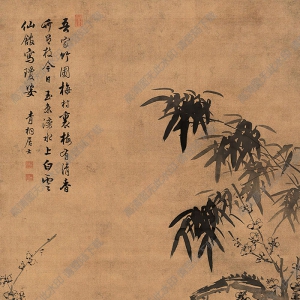 吾家竹園梅村裏梅有清香
竹有枝今日玉水上白雲
仙館寫瓊姿
青桐居士